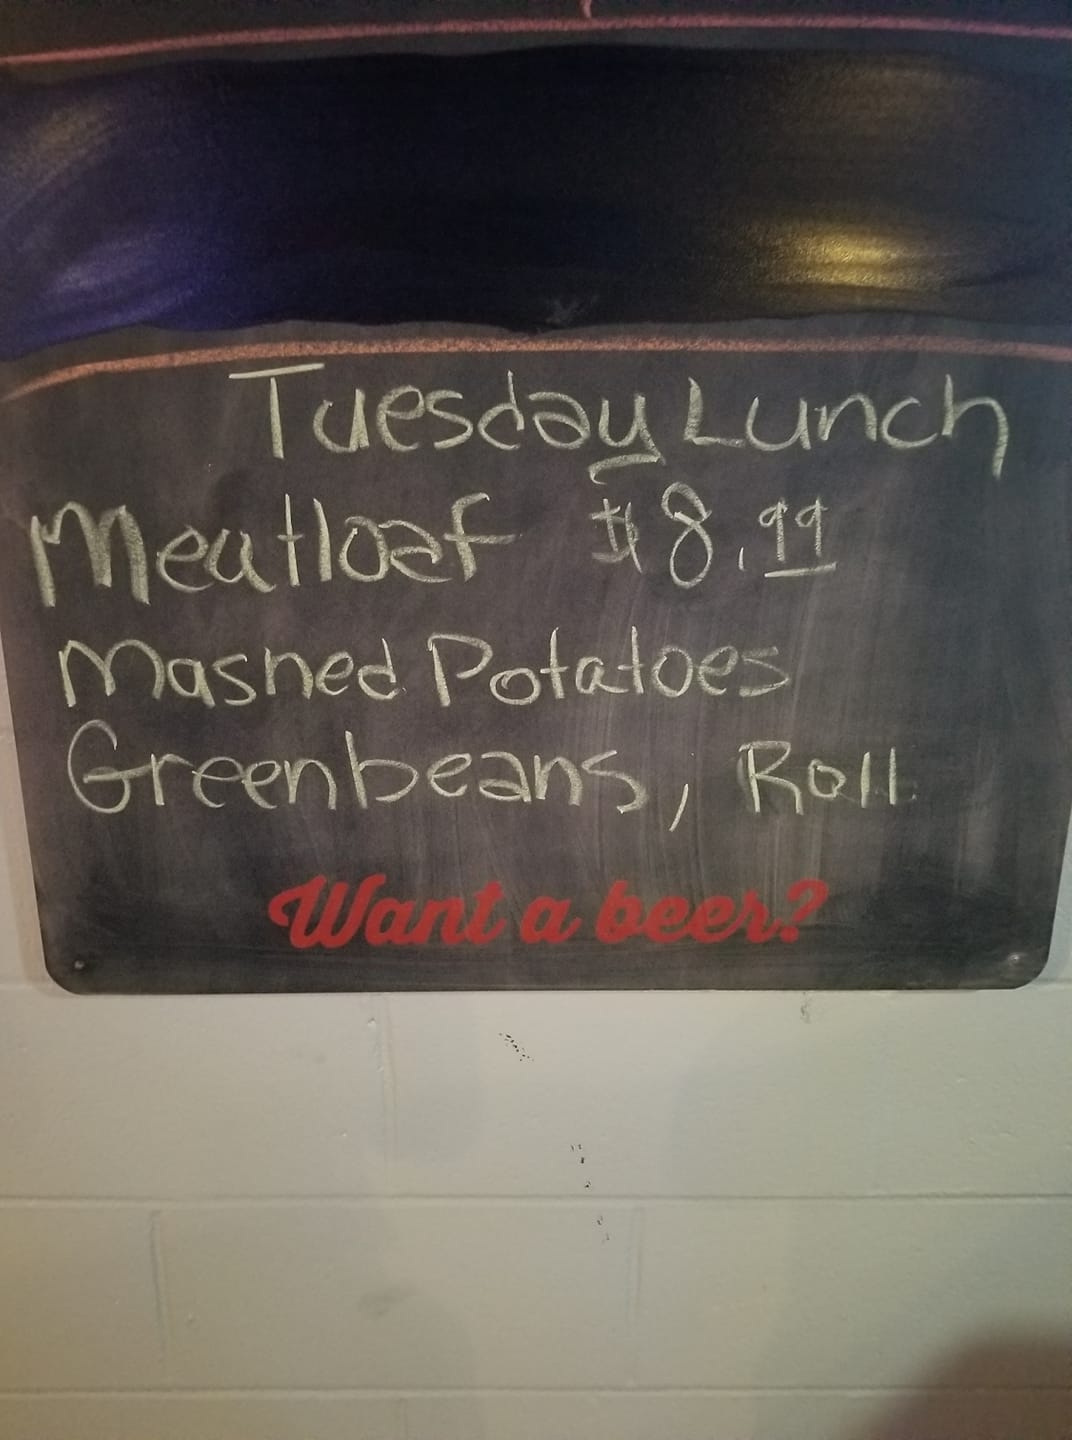 Tuesday Lunch
Meatloaf $8.99
Mashed Potatoes
Greenbeans, Roll
Want a beer?